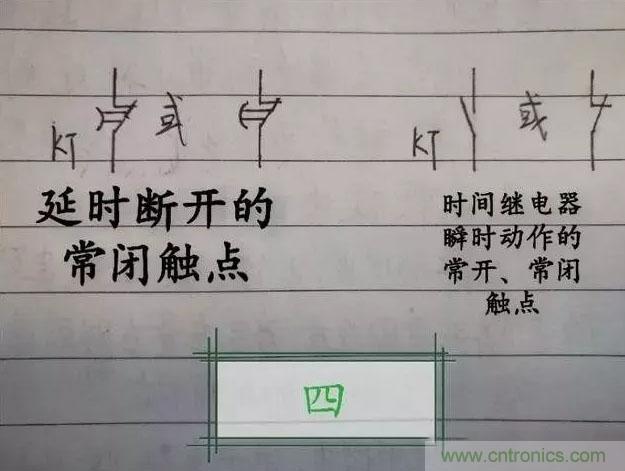 KT 或
KT 或
延时断开的
常闭触点
时间继电器
瞬时动作的
常开、常闭
触点
四
www.cntronics.com